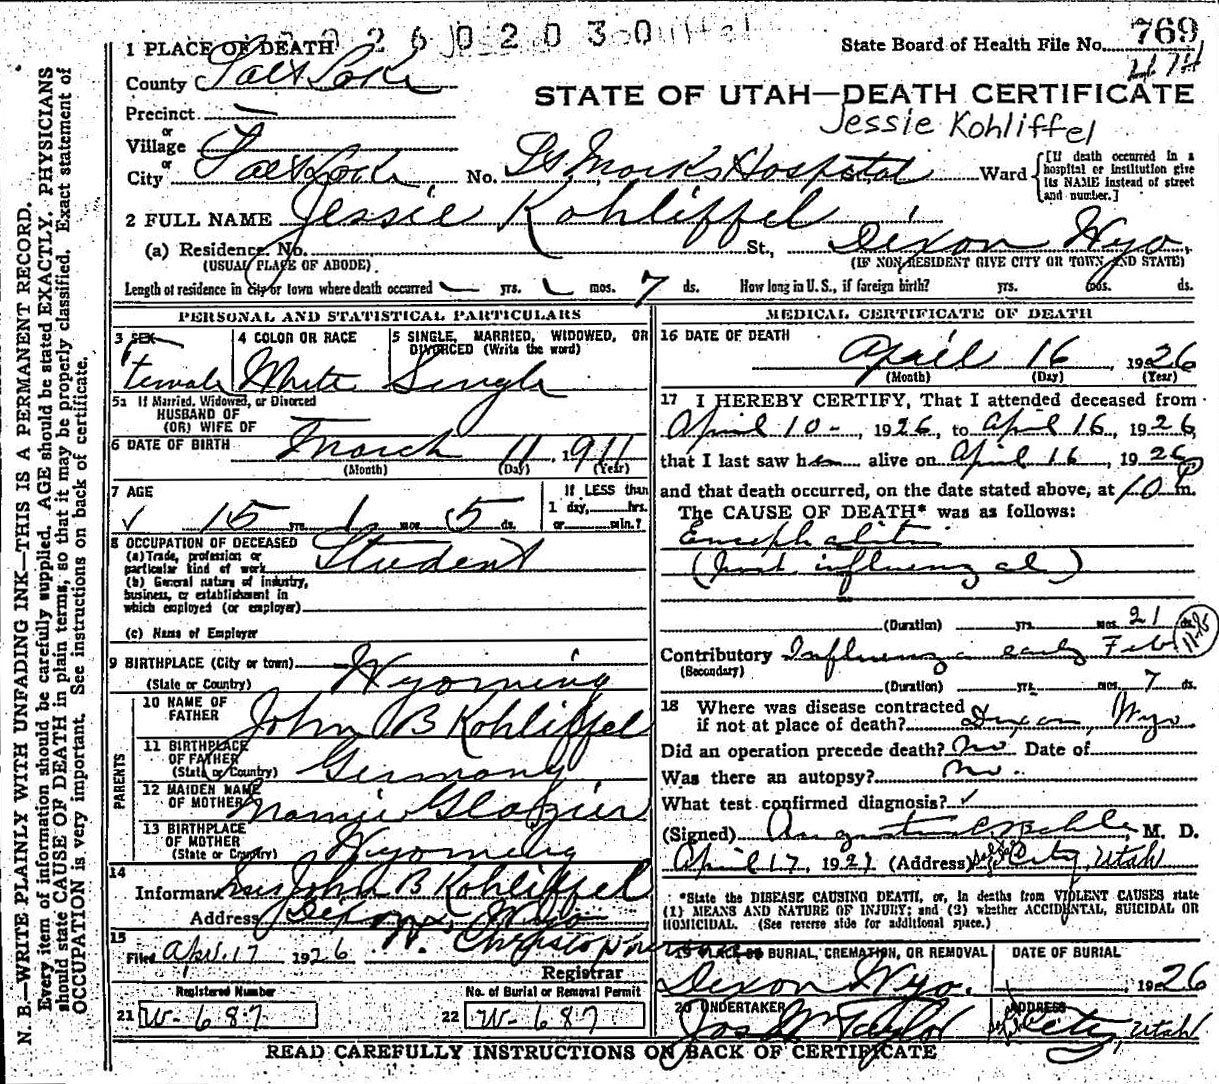 2 6 0 2 0 3 0
1 PLACE OF DEATH
State Board of Health File No. 769
County Salt Lake
STATE OF UTAH—DEATH CERTIFICATE
Precinct —
Jessie Kohliffel
or
Village
or
City Salt Lake, No. St Marks Hospital Ward
[If death occurred in a hospital or institution give its NAME instead of street and number.]
2 FULL NAME Jessie Kohliffel
(a) Residence, No. St, Dixon Wyo,
(USUAL PLACE OF ABODE) (IF NON-RESIDENT GIVE CITY OR TOWN AND STATE)
Length of residence in city or town where death occurred — yrs. mos. 7 ds. How long in U. S., if foreign birth? yrs. mos. ds.
PERSONAL AND STATISTICAL PARTICULARS
3 SEX 4 COLOR OR RACE 5 SINGLE, MARRIED, WIDOWED, OR DIVORCED (Write the word)
Female White Single
5a If Married, Widowed, or Divorced
HUSBAND OF
(OR) WIFE OF
6 DATE OF BIRTH March 11, 1911
(Month) (Day) (Year)
7 AGE If LESS than
15 yrs. 1 mos. 5 ds. 1 day, hrs.
or min.?
8 OCCUPATION OF DECEASED
(a) Trade, profession or particular kind of work Student
(b) General nature of industry, business, or establishment in which employed (or employer)
(c) Name of Employer
9 BIRTHPLACE (City or town)
(State or Country) Wyoming
PARENTS
10 NAME OF FATHER John B Kohliffel
11 BIRTHPLACE OF FATHER (State or Country) Germany
12 MAIDEN NAME OF MOTHER Glazier
13 BIRTHPLACE OF MOTHER (State or Country) Wyoming
14
Informant Mrs John B Kohliffel
Address Dixon, Wyo
15
Filed Apr. 17 1926
Registrar
Registered Number No. of Burial or Removal Permit
21 W-687 22 W-687
MEDICAL CERTIFICATE OF DEATH
16 DATE OF DEATH
April 16 1926
(Month) (Day) (Year)
17 I HEREBY CERTIFY, That I attended deceased from
April 10-, 1926, to April 16, 1926,
that I last saw her alive on April 16, 1926
and that death occurred, on the date stated above, at 10 P m.
The CAUSE OF DEATH* was as follows:
Encephalitis
influenzal)
(Duration) yrs. mos. 21 ds.
Contributory Influenza early Feb
(Secondary)
(Duration) yrs. mos. 7 ds.
18 Where was disease contracted
if not at place of death? Dixon, Wyo
Did an operation precede death? No Date of
Was there an autopsy? no.
What test confirmed diagnosis?
(Signed) M. D.
April 17, 192 (Address) City, Utah
*State the DISEASE CAUSING DEATH, or, in deaths from VIOLENT CAUSES state
(1) MEANS AND NATURE OF INJURY; and (2) whether ACCIDENTAL, SUICIDAL OR
HOMICIDAL. (See reverse side for additional space.)
19 PLACE OF BURIAL, CREMATION, OR REMOVAL DATE OF BURIAL
Dixon Wyo. , 1926
20 UNDERTAKER ADDRESS
Jos Wm Taylor City, Utah
READ CAREFULLY INSTRUCTIONS ON BACK OF CERTIFICATE
N. B.—WRITE PLAINLY WITH UNFADING INK—THIS IS A PERMANENT RECORD.
Every item of information should be carefully supplied. AGE should be stated EXACTLY. PHYSICIANS
should state CAUSE OF DEATH in plain terms, so that it may be properly classified. Exact statement of
OCCUPATION is very important. See instructions on back of certificate.